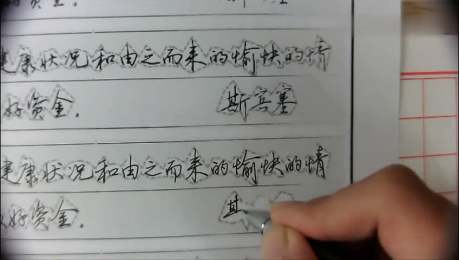 健康状况和由之而来的愉快的情
好资金.
斯宾塞
健康状况和由之而来的愉快的情
好资金.
其